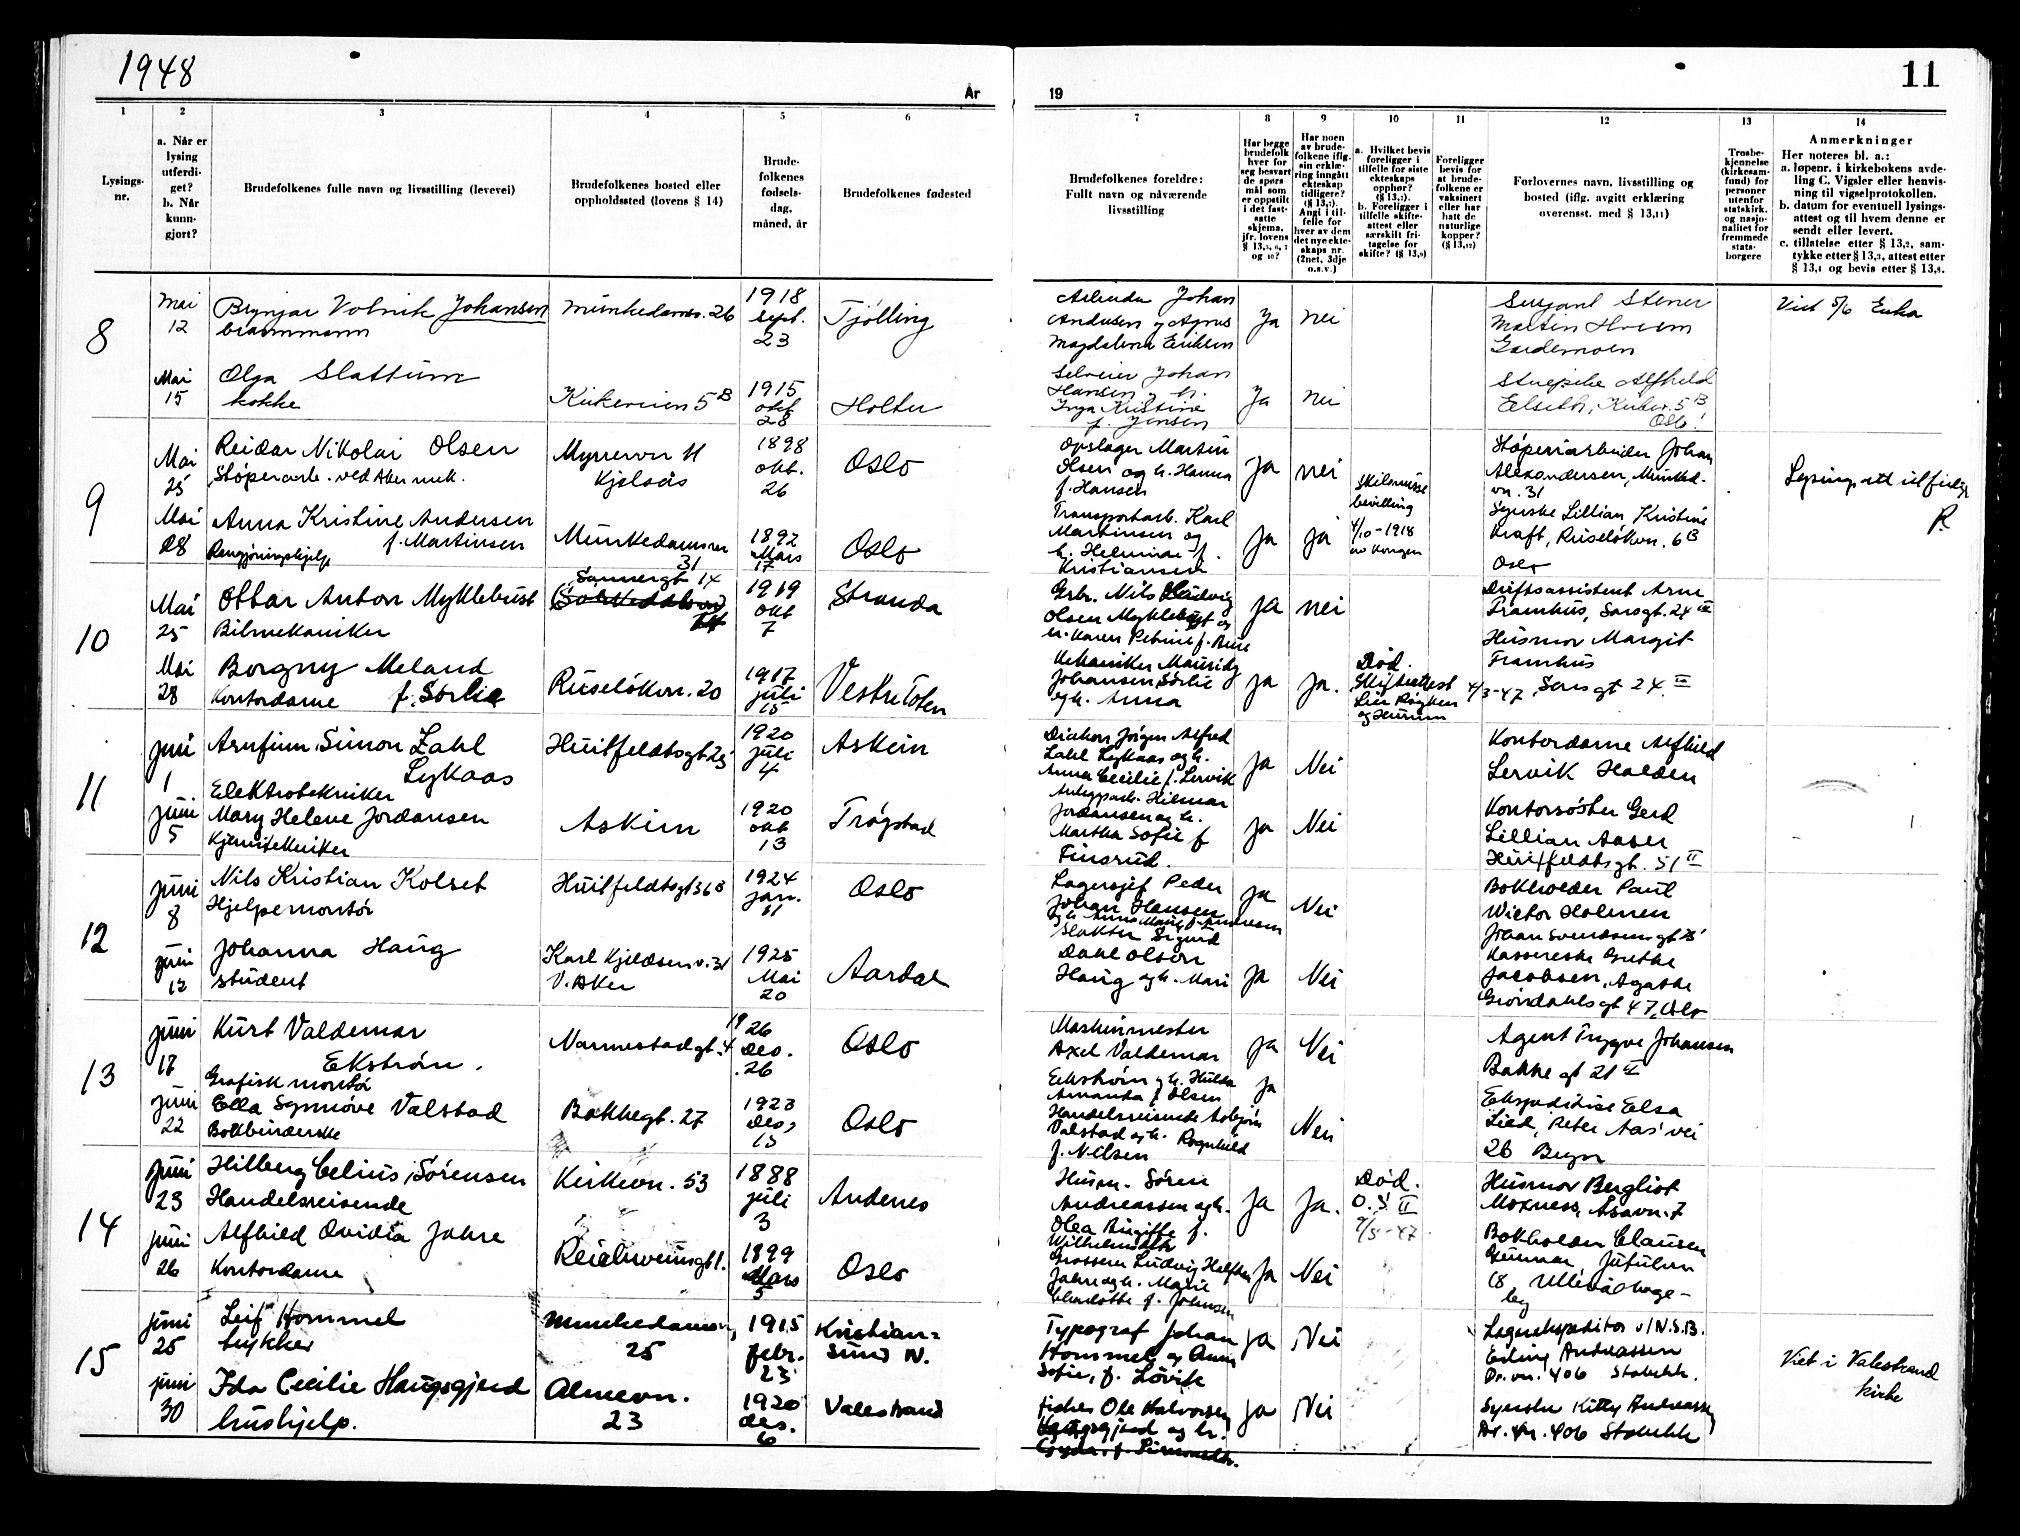 1948
År
19
11
1
2
3
4
5
6
7
8
9
10
11
12
13
14
Lysings-
nr.
a. Når er
lysing
utferdi-
get?
b. Når
kunn-
gjort?
Brudefolkenes fulle navn og livsstilling (levevei)
Brudefolkenes bosted eller
oppholdssted (lovens § 14)
Brude-
folkenes
fødsels-
dag,
måned, år
Brudefolkenes fødested
Brudefolkenes foreldre:
Fullt navn og nåværende
livsstilling
Har begge
brudefolk
hver for
seg besvart
de spørs
mål som
er oppstilt
i det fast-
satte
skjema,
jfr. lovens
Har noen
av brude-
folkene iflg.
sin erklæ-
ring inngått
ekteskap
tidligere?
(§ 13,7).
Angi i til-
felle for
hver av dem
det nye ekte-
skaps nr.
(2net, 3dje
o.s.v.)
a. Hvilket bevis
foreligger i
tilfelle for siste
ekteskaps
opphør?
b. Foreligger i
tilfelle skifte-
attest eller
særskilt fri-
tagelse for
skifte? (§ 13,9)
Foreligger
bevis for
at brude-
folkene er
vaksinert
eller har
hatt de
naturlige
kopper?
Forlovernes navn, livsstilling og
bosted (iflg. avgitt erklæring
overensst. med § 13,11)
Trosbe-
kjennelse
(kirkesam-
fund) for
personer
utenfor
statskirk.
og nasjo-
nalitet for
fremmede
stats-
borgere
Anmerkninger
Her noteres bl. a.:
a. løpenr. i kirkebokens avde-
ling C. Vigsler eller henvis-
ning til vigselprotokollen.
b. datum for eventuell lysings-
attest og til hvem denne er
sendt eller levert.
c. tillatelse etter § 13,2, sam-
tykke etter § 13,3, attest etter
8
Mai
12
Brynjar Volrik Johansen
brannmann
Munkedamsv. 26
1918
sept.
23
Tjølling
Arbeider Johan
Andersen og Agnes
Magdalena Eriksen
Ja
nei
Sersjant Stener
Martin
Gardemoen
Mai
15
Olga Slattum
kokke
Kirkeveien 5 B
1915
okt
28
Holter
Selveier Johan
Hansen og h.
Inga Kristine
f. Jensen
Ja
nei
Strepike Alfhild
Elseth, Kirkev. 5 B
Oslo
9
Mai
25
Reidar Nikolai Olsen
Støperiarb. ved Aker mek.
Myrervn 11
Kjelsås
1898
okt.
26
Oslo
Opslager Martin
Olsen og h. Hanna
f. Hansen
Ja
nei
Støperiarbeider Johan
Alexandersen, Munked.
vn. 31
Mai
28
Anna Kristine Andersen
f. Martinsen
Rengjøringshjelp
Munkedamsvn
31
1892
Mars
17
Oslo
Transportarb. Karl
Martinsen og
h. Helmine f.
Kristiansen
Ja
ja
Skilsmisse
bevilling
4/10-1918
av Kongen
Syerske Lillian Kristine
Kraft, Ruseløkvn. 6 B
Oslo
10
Mai
25
Ottar Anton Myklebust
Bilmekaniker
Sannergt 14
1919
okt
7
Stranda
Grbr. Nils Ludvig
Olsen Myklebust og
h. Karen Petrine f.
ja
nei
Driftsassistent Arne
Framhus, Sarsgt. 24 III
Husmor Margit
Framhus
Sarsgt 24. III
Mai
28
Borgny Meland
Kontordame f. Sørlie
Ruseløkvn. 20
1917
juli
15
Vestre Toten
Mekaniker Mauritz
Johansen Sørlie
og h. Anna
ja
ja.
Død.
Skifteattest
Lier Røyken
og Hurum
4/3-47
11
juni
1
Arnfinn Simon Zahl
Lykaas
Elektrotekniker
Huitfeldtsgt 25
1920
juli
4
Askim
Direktør Jørgen Alfred
Zahl Lykaas og h.
Anna Cecilie f. Lervik
ja
Nei
Kontordame Alfhild
Lervik Halden
juni
5
Mary Helene Jordansen
Kjemitekniker
Askim
1920
okt
13
Trøgstad
Anleggsarb. Hilmar
Jordansen og h.
Martha Sofie f
Finsrud.
ja
Nei
Kontorsøster Gerd
Lillian Aaser
Huitfeldtsgt. 51 II
12
juni
8
Nils Kristian Kolset
Hjelpemontør
Huitfeldtsgt 36 B
1924
jan.
11
Oslo
Lagersjef Peder
Johan Hansen
ja
Nei
Bokholder Paul
Wictor Holmen
juni
12
Johanna Haug
student
Karl Kjeldsens v. 31
V. Aker
1925
Mai
20
Aardal
Slakter Sigurd
Dahl Olson
Haug og h. Mari
ja
Nei
Kassererske Grethe
Jacobsen, Agathe
Grøndahlsgt 47, Oslo
13
juni
17
Kurt Valdemar
Ekstrøm.
Grafisk montør
Nannestadgt. 4
1926
Des.
26
Oslo
Maskinmester
Axel Valdemar
Ekstrøm og h. Hulda
Amanda f Olsen
ja
Nei
Agent Trygve Johansen
Bakke gt 21 II
juni
22
Ella Synnøve Valstad
Bokbinderske
Bakkegt. 27
1923
Des,
13
Oslo
Handelsreisende Asbjørn
Valstad og h. Ragnhild
f. Nilsen
ja
Nei
Ekspeditrise Elsa
Lied, Peter Aas' vei
26 Bryn
14
juni
23
Hilberg Celius Sørensen
Handelsreisende
Kirkevn. 53
1888
juli
3
Andenes
Husm. Søren
Andreassen og h.
Olea Birgitte f.
ja
Ja.
Død.
O.S. II
9/5-47
Husmor Bergliot
Moxness, Åsavn. 7
juni
26
Alfhild Ovidia Jahre
Kontordame
Reichweinsgt 1.
1899
Mars
5
Oslo
Grosserer Ludvig
Jahre og h. Marie
Charlotte f. Johnsen
ja
Nei
Bokholder Clausen
Gunnar, Jutulvn
18 Ullevål hage-
by
15
juni
25
Leif Hommel
trykker
Munkedamsvn,
25
1915
febr.
23
Kristian=
sund N.
Typograf Johan
Hommel og Anna
Sofie, f. Løvik
ja
Nei
Lagerekspeditør v/N.S.B.
Erling Andreassen
Dr. vn. 406 Stabekk.
juni
30
Ida Cecilie Haugsgjerd
hushjelp.
Almevn.
23
1920
des.
6
Valestrand
Fisker Ole Halvorsen
Haugsgjerd og h.
ja
Nei
Syerske Kitty Andreassen
Dr. vn. 406 Stabekk
Viet i Valestrand
kirke